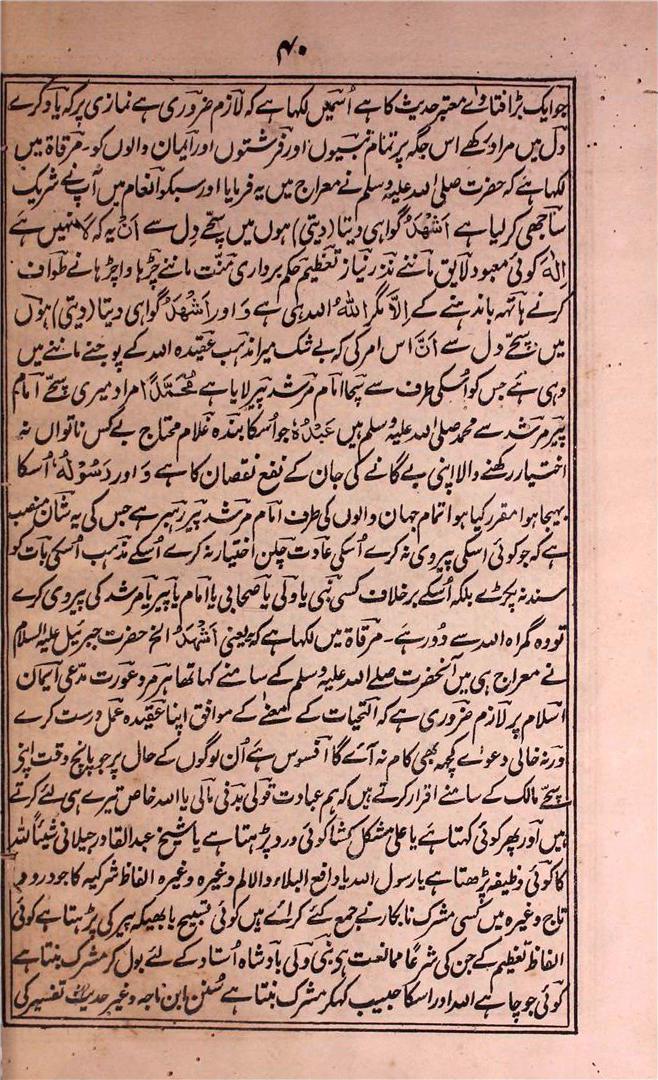 ۴۰
جو ایک بڑا فتاوے معتبر حدیث کا ہے اُسمیں لکھا ہے کہ لازم ضروری ہے نمازی پر کہ یاد کرے
دل میں مراد رکھے اس جگہ پر تمام نبیوں اور فرشتوں اور ایمان والوں کو۔ مرقاۃ میں
لکھا ہے کہ حضرت صلی اللہ علیہ وسلم نے معراج میں یہ فرمایا اور سبکو انعام میں آپ نے شریک
ساجھی کر لیا ہے اَشْهَدُ گواہی دیتا (دیتی) ہوں میں سچے دِل سے اَنْ یہ کہ لَا نہیں ہے
اِلٰهَ کوئی معبود لایق ماننے نذر نیاز تعظیم حکم برداری منّت ماننے چڑہاوا چڑہانے طواف
کرنے ہاتھہ باندہنے کے اِلَّا مگر اللّٰهُ اللہ ہی ہے وَ اور اَشْهَدُ گواہی دیتا (دیتی) ہوں
میں سچّے دل سے اَنَّ اس امر کی کہ بے شک میرا مذہب عقیدہ اللہ کے پوجنے ماننے میں
وہی ہے جس کو اُسکی طرف سے سچا امام مرشد پیر لایا ہے مُحَمَّدًا مراد میری سچّے امام
پیر مرشد سے محمد صلی اللہ علیہ وسلم ہیں عَبْدُهٗ جو اُسکا بندہ غلام محتاج بے کس ناتواں نہ
اختیار رکھنے والا اپنی بے گانے کی جان کے نفع نقصان کا ہے وَ اور رَسُوْلُهٗ اُسکا
بھیجا ہوا مقرر کیا ہوا تمام جہان والوں کی طرف امام مرشد پیر رہبر ہے جس کی یہ شان منصب
ہے کہ جو کوئی اسکی پیروی نہ کرے اُسکی عادت چلن اختیار نہ کرے اُسکے مذہب اُسکی بات کو
سند نہ پکڑے بلکہ اُسکے برخلاف کسی نبی یا ولی یا صحابی یا امام یا پیر یا مرشد کی پیروی کرے
تو وہ گمراہ اللہ سے دُور ہے۔ مرقاۃ میں لکھا ہے کہ یعنی اَشْهَدُ الخ حضرت جبرئیل علیہ السلام
نے معراج ہی میں آنحضرت صلے اللہ علیہ وسلم کے سامنے کہا تھا ہر مرد عورت مدّعی ایمان
اسلام پر لازم ضروری ہے کہ التحیات کے معنے کے موافق اپنا عقیدہ عمل درست کرے
ورنہ خالی دعوے کچھہ بھی کام نہ آئے گا افسوس ہے اُن لوگوں کے حال پر جو پانچ وقت اپنی
سچّے مالک کے سامنے اقرار کرتے ہیں کہ ہم عبادت قولی بدنی مالی یا اللہ خاص تیرے ہی لئے کرتے
ہیں اور پھر کوئی کہتا ہے یا علی مشکل کشا کوئی ورد پڑہتا ہے یا شیخ عبد القادر جیلانی شیئاً للہ
کا کوئی وظیفہ پڑھتا ہے یا رسول اللہ یا دافع البلاء والالم وغیرہ وغیرہ الفاظ شرکیہ کا جو درود
تاج وغیرہ میں کسی مشرک نابکار نے جمع کئے کرائے ہیں کوئی تسبیح یا بھیکہ پیر کی پڑہتا ہے کوئی
الفاظ تعظیم کے جن کی شرعًا ممانعت ہے نبی ولی بادشاہ اُستاد کے لئے بول کر مشرک بنتا ہے
کوئی جو چاہے اللہ اور اسکا حبیب کہکر مشرک بنتا ہے سُنن ابن ماجہ وغیرہ حدیث تفسیر کی